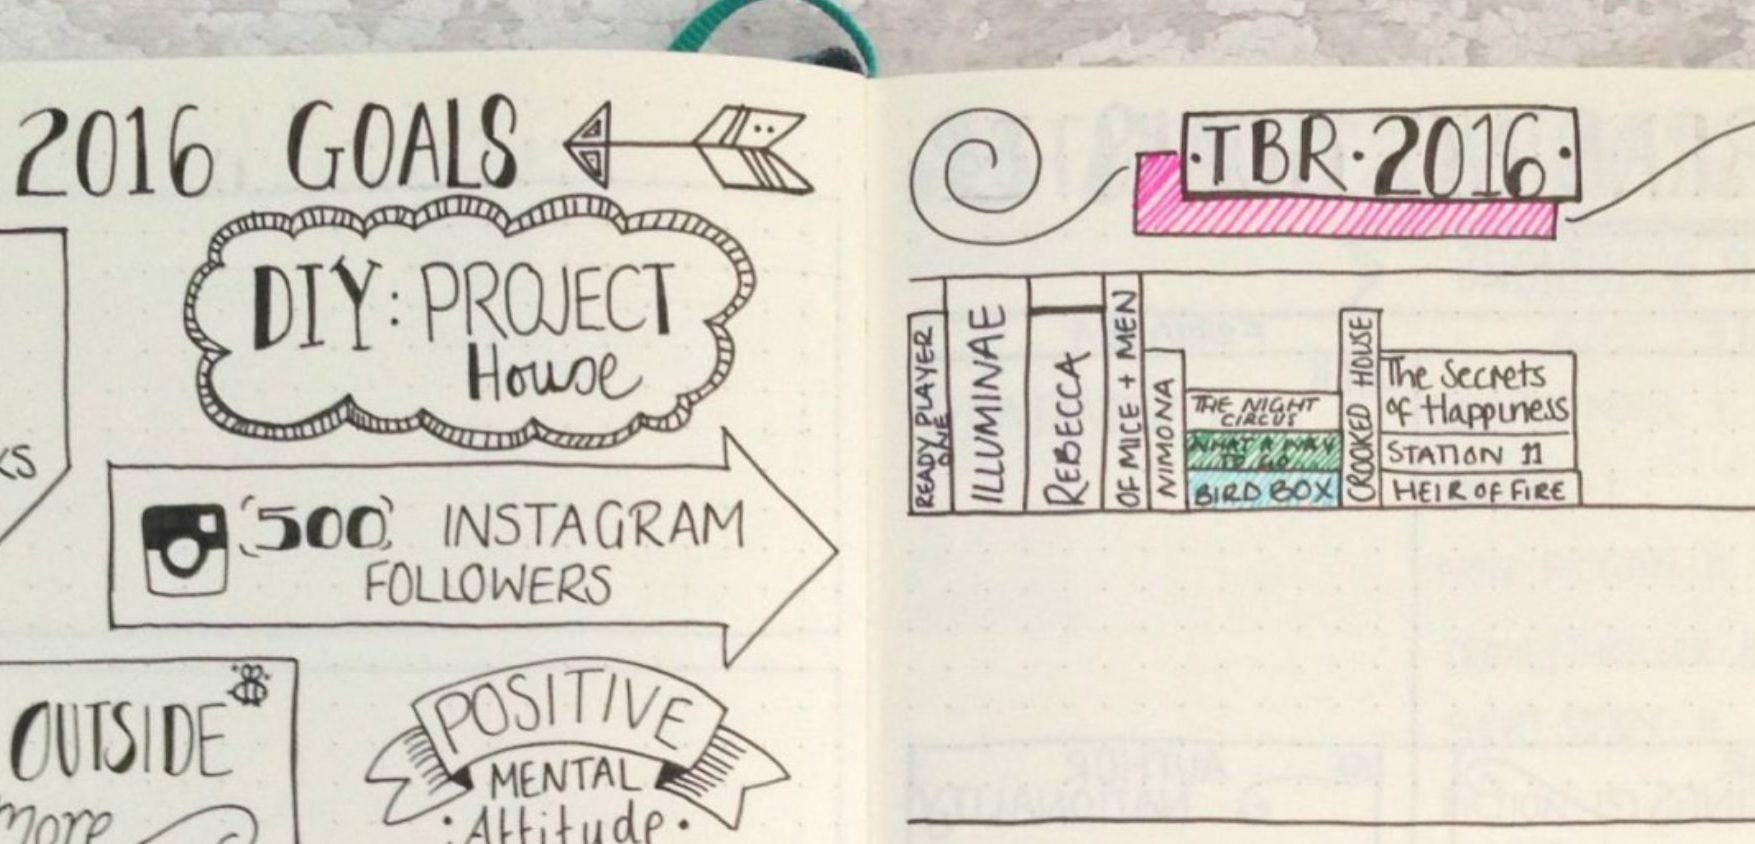 2016 GOALS
DIY: PROJECT
House
KS
(500) INSTAGRAM
FOLLOWERS
OUTSIDE
more
POSITIVE
MENTAL
·Attitude·
·TBR·2016·
READY PLAYER
ONE
ILLUMINAE
REBECCA
OF MICE + MEN
NIMONA
THE NIGHT
CIRCUS
WHAT A WAY
TO GO
BIRD BOX
CROOKED HOUSE
The Secrets
of Happiness
STATION 11
HEIR OF FIRE
AUTHOR
NATIONALITY